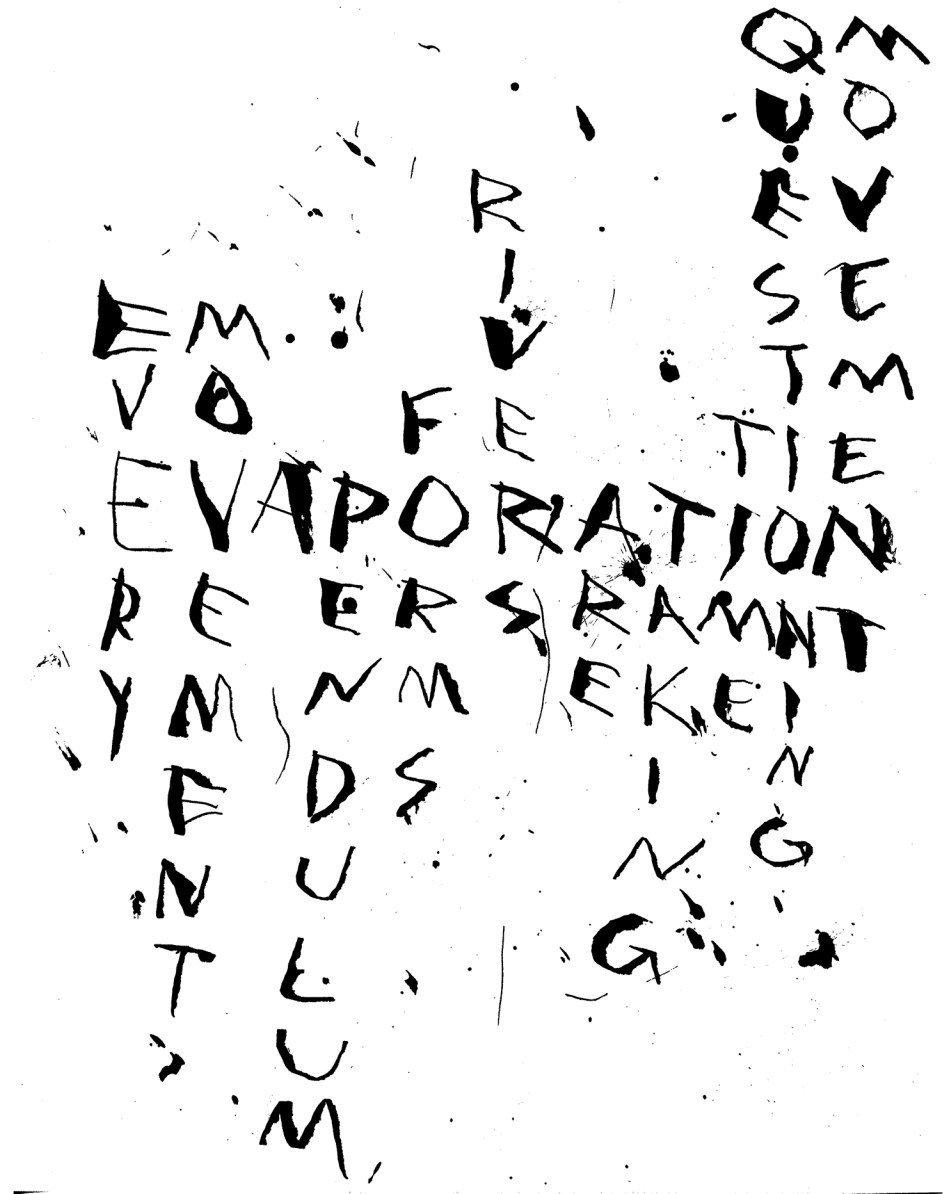 EVAPORATION
EVERY
MOVEMENT
A
PENDULUM
FORMS
RIVERS
ARE
TAKING
TIME
QUESTIONING
MOVEMENT